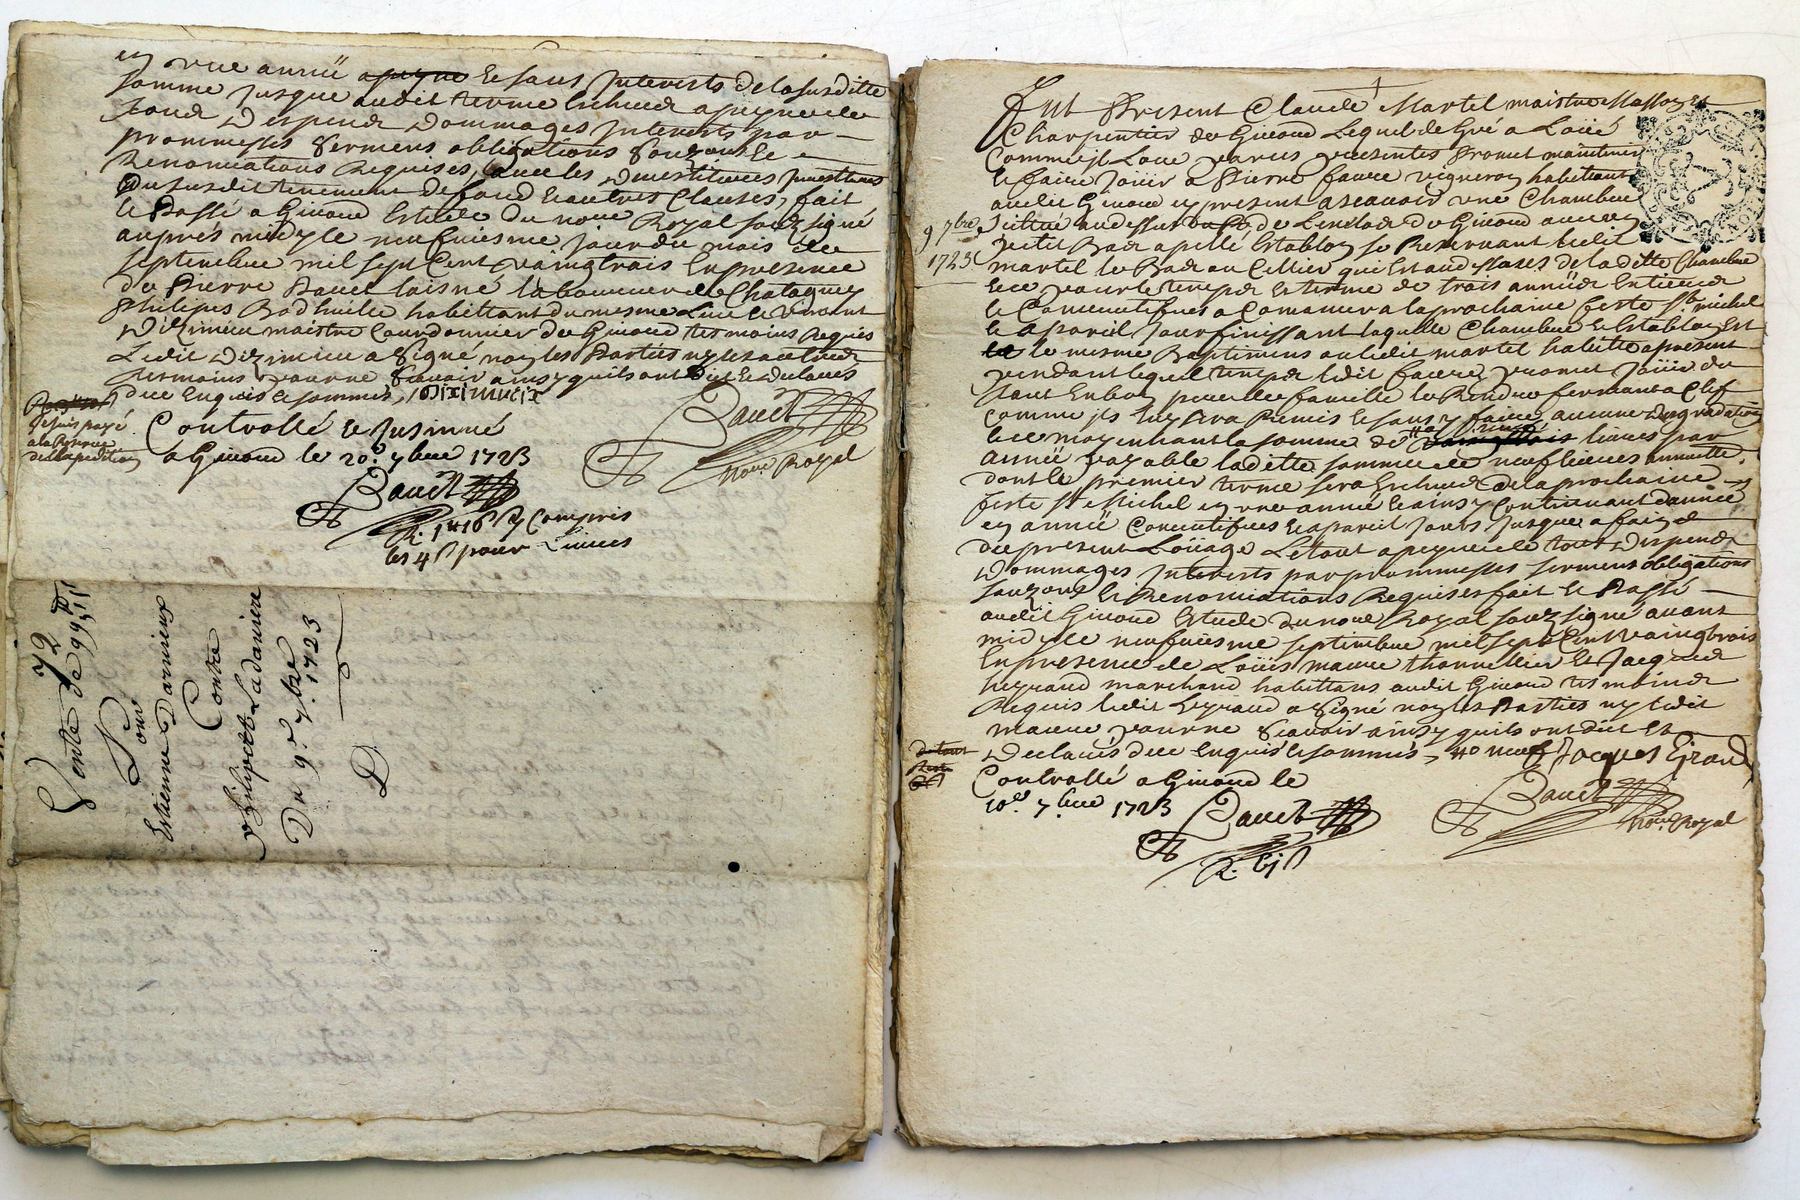 en une année et sans Interests de la susditte
somme jusque audit terme Escheu a peyne de
tous Despend Dommages Interests par
prommesses sermens obligations souzons et
Renonciations Requises, avec les Dinvestitures
Du susdit tenement de fond et autres Clauses, fait
et Passé a Givord Estude Du noue Royal souzsigné
auprés midy le neufviesme jour du mois de
septembre mil sept Cent vaingtrois En presence
De Pierre laisné laboureur de Chatagney
Philipes habittant du mesme Lieu et Vincent
Dizimieu maistre Courdonnier de Givord tesmoins Requis
Ledit Dizimieu a Signé non les Parties ny les autres
tesmoins pour ne Scavoir ainsy quils ont Dit et Declarés
due Enquis et sommés,
je suis payé
a la Reserve
de lexpedition
Controllé et Insinué
a Givord le 20e 7bre 1723
noue Royal
y Compris
les 4 s pour Livres
72
Vente de 99
Pour
Estienne Darnieux
Contre
Philiperte Ladaniere
Du 9e 7bre 1723
D
Fut Present Claude Martel maistre Masson et
Charpentier de Givord Lequel de Gré a Loüé
Comme jl Loue par ces presentes Promet maintenir
et faire Joüir a Pierre faure vigneron habittant
audit Givord cy present ascavoir une Chambre
9 7bre
1723
Scitué au dessus de Lenclos de Givord avec un
petit Bas apellé Establoy se Reservant ledit
martel le Bas ou Cellier qui Est au dessous de laditte Chambre
Et ce pour le temps et terme de trois années Entieres
et Consecutifves a Comancer a la prochaine feste St michel
et a pareil jour finissant laquelle Chambre et Establoy Est
le mesme Baptimens ou ledit martel habitte apresent
pendant lequel temps ledit faure promet Joüir du
tout En bon pere de famille le Rendre fermant a Clef
Comme jls luy sera Remis et sans y faire aucune degradation
et ce moyennant la somme de neuf livres par
année payable laditte somme de neuf livres annuelle,
dont le premier terme sera Escheu de la prochaine
feste St Michel en une année et ainsy Continuant dannée
en année Consecutifves et a pareil jours jusque a fain
du present Loüage Le tout a peyne de tous Despend
Dommages Interests par prommesses sermens obligations
souzons et Renonciations Requises fait et Passé
audit Givord Estude du noue Royal souzsigné avant
midy le neufviesme septembre mil sept Cent Vaingtrois
En presence de Loüis maure thonnellier Et Jacques
Leyraud marchand habittans audit Givord tesmoins
Requis ledit Leyraud a Signé non les Parties ny ledit
maure pour ne Scavoir ainsy quils ont dit et
Declarés due Enquis et sommés, Jacques
Controllé a Givord le
10e 7bre 1723
noue Royal